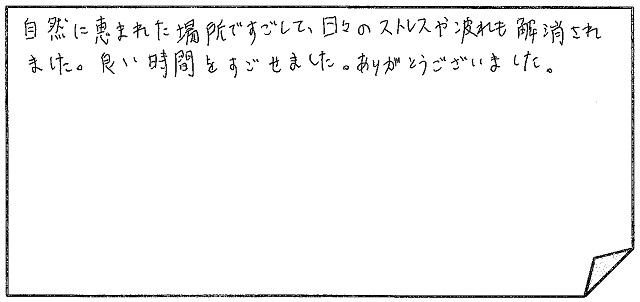 自然に恵まれた場所ですごして、日々のストレスや疲れも解消され
ました。良い時間をすごせました。ありがとうございました。